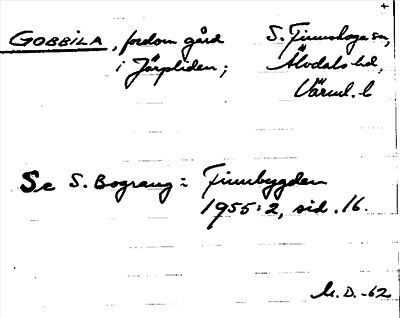 GOBBILA, fordom gård S. Finnskoga sn,
i Järpliden; Älvdals hd,
Värml. l
Se S. Bograng: Finnbygden
1955:2, sid. 16.
M.D.-62